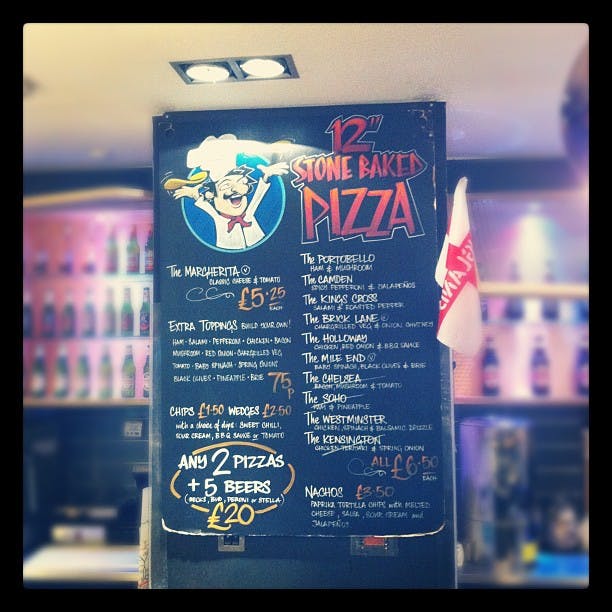 12"
STONE BAKED
PIZZA
The MARGHERITA (V)
CLASSIC CHEESE & TOMATO
£5.25
EACH
EXTRA TOPPINGS BUILD YOUR OWN!
HAM • SALAMI • PEPPERONI • CHICKEN • BACON
MUSHROOM • RED ONION • CHARGRILLED VEG
TOMATO • BABY SPINACH • SPRING ONIONS
BLACK OLIVES • PINEAPPLE • BRIE 75P
CHIPS £1.50 WEDGES £2.50
with a choice of dips: SWEET CHILLI,
SOUR CREAM, BBQ SAUCE or TOMATO
ANY 2 PIZZAS
+ 5 BEERS
(BECKS, BUD, PERONI or STELLA)
£20
The PORTOBELLO
HAM & MUSHROOM
The CAMDEN
SPICY PEPPERONI & JALAPEÑOS
The KINGS CROSS
SALAMI & ROASTED PEPPER
The BRICK LANE (V)
CHARGRILLED VEG & ONION CHUTNEY
The HOLLOWAY
CHICKEN, RED ONION & BBQ SAUCE
The MILE END (V)
BABY SPINACH, BLACK OLIVES & BRIE
The CHELSEA
BACON, MUSHROOM & TOMATO
The SOHO
HAM & PINEAPPLE
The WESTMINSTER
CHICKEN, SPINACH & BALSAMIC DRIZZLE
The KENSINGTON
CHICKEN TERIYAKI & SPRING ONION
ALL £6.50
EACH
NACHOS £3.50
PAPRIKA TORTILLA CHIPS with MELTED
CHEESE, SALSA, SOUR CREAM and
JALAPEÑOS